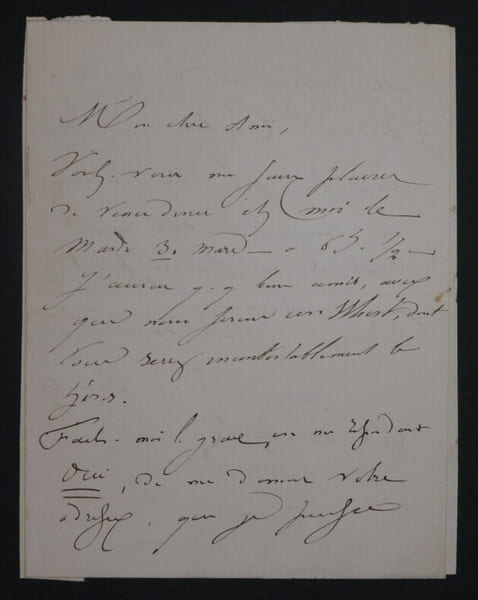 Mon cher Ami,
Voulez-vous me faire plaisir
de venir diner chez moi le
Mardi 3. mars — a 6h. 1/2 —
J'aurai q.q. bons amis, avec
qui nous ferons un Whist, dont
vous serez incontestablement le
héros.
Faites-moi la grace, en me répondant
Oui, de me donner votre
adresse, que je puisse